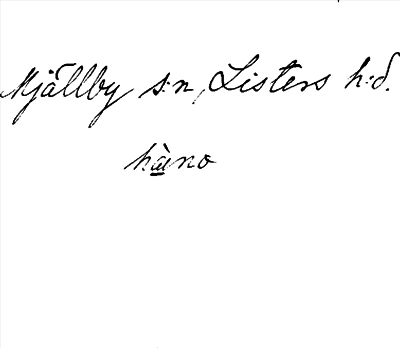 Mjällby s:n, Listers h:d.
hæ̀no